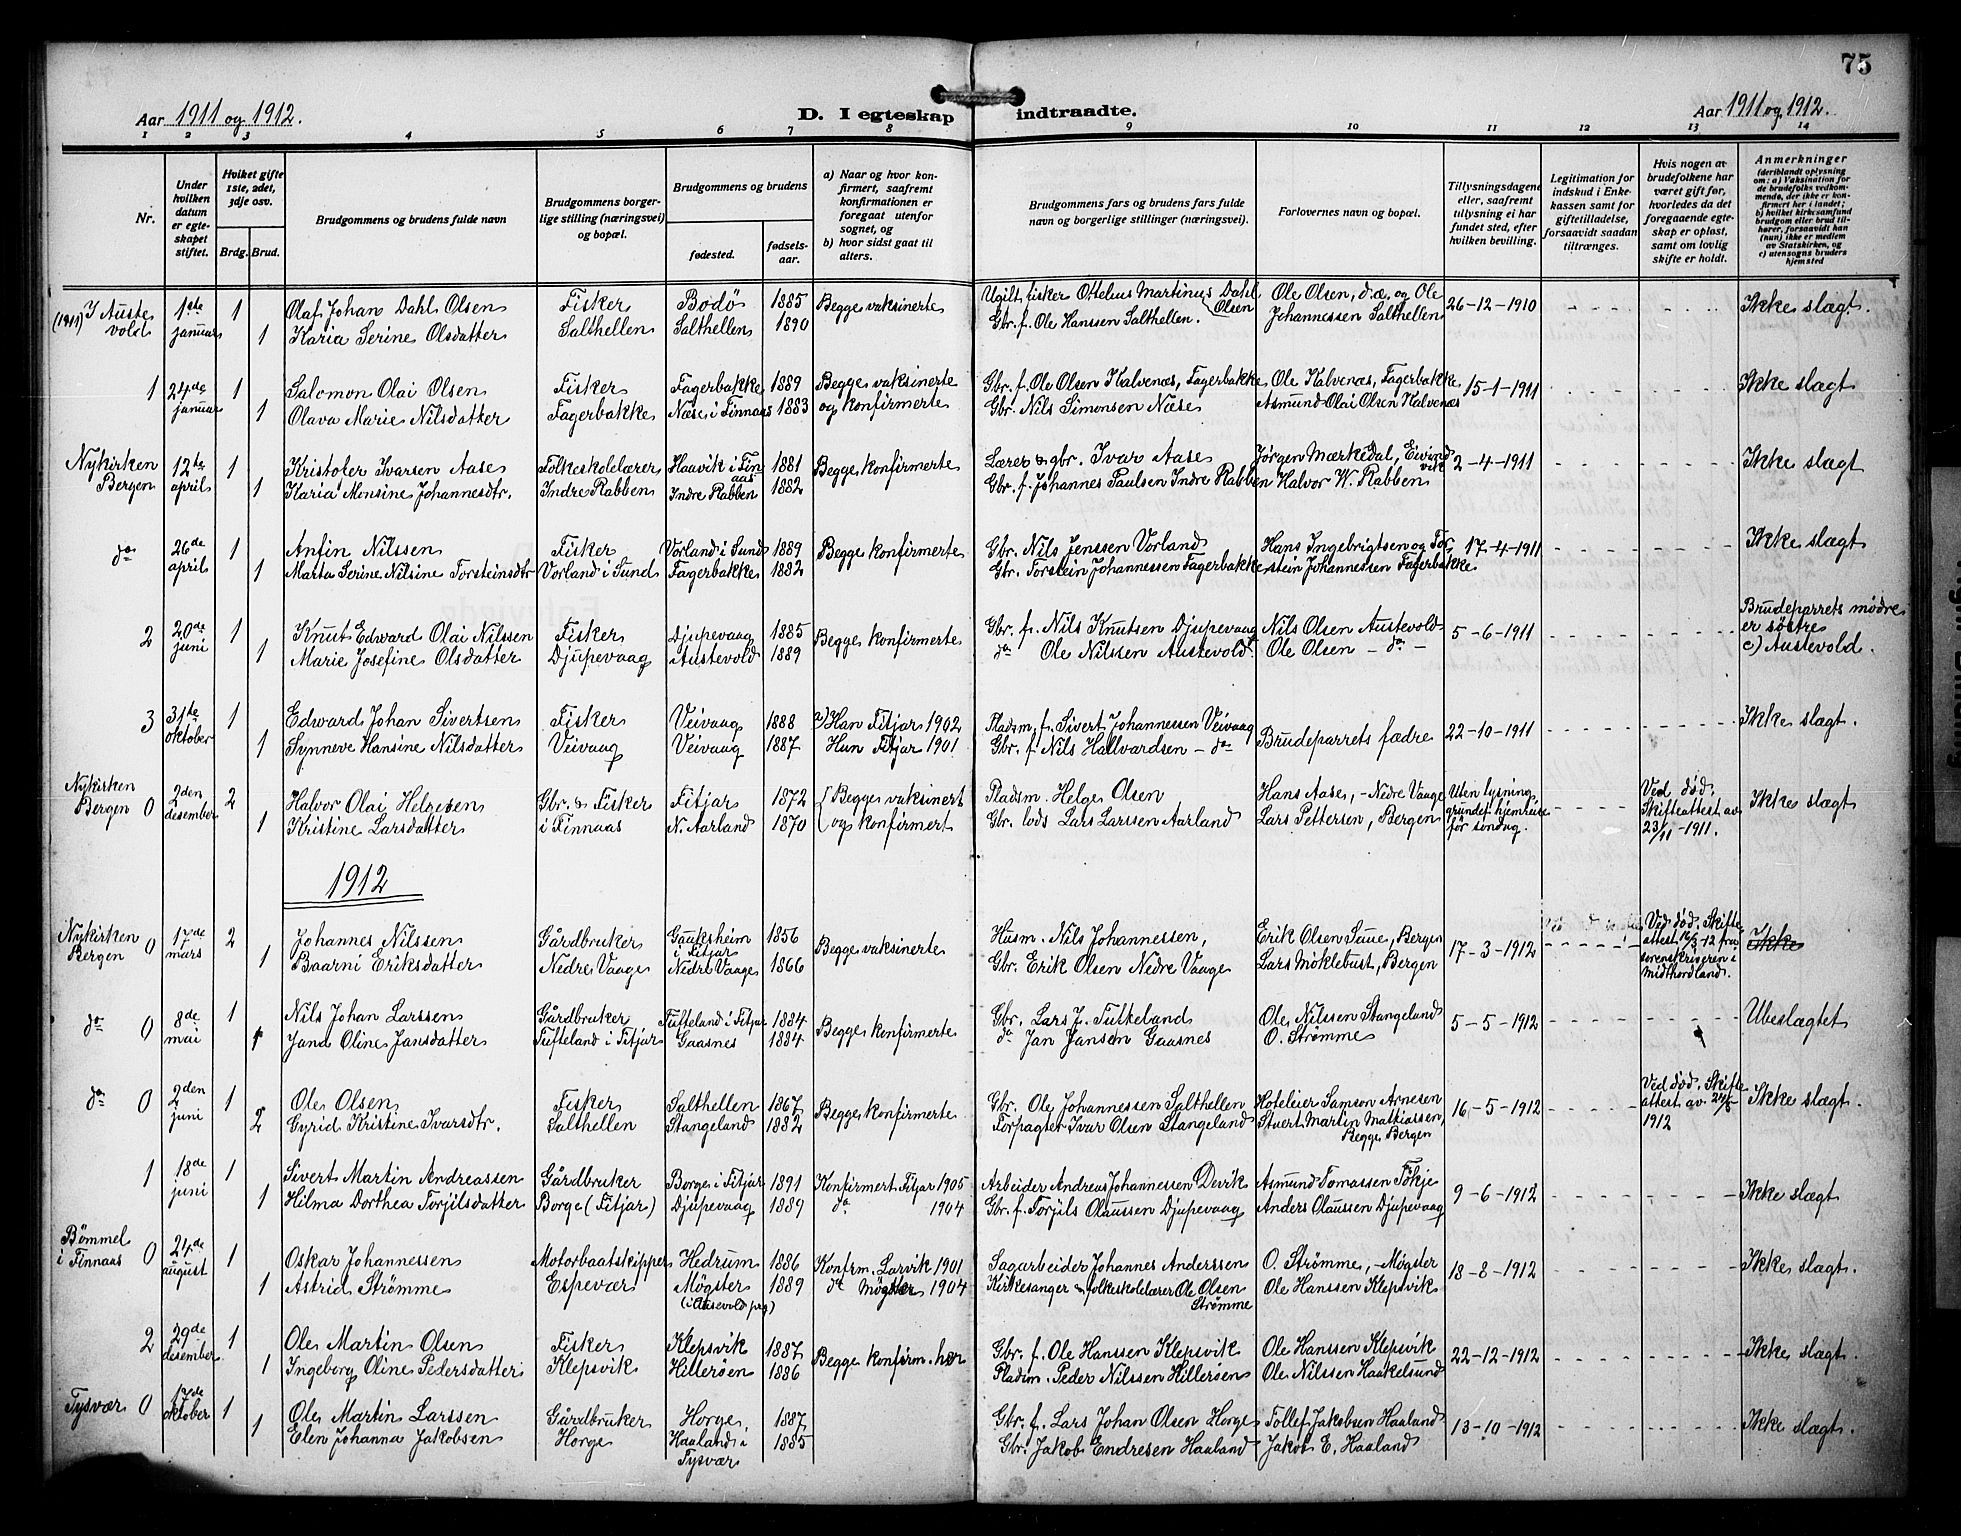 75
Aar 1911 og 1912.
D. I egteskap indtraadte.
Aar 1911 og 1912.
1 2 3 4 5 6 7 8 9 10 11 12 13 14
Nr.
Under hvilken datum er egteskapet stiftet.
Hvilket gifte 1ste, 2det, 3dje osv.
Brdg. Brud.
Brudgommens og brudens fulde navn
Brudgommens borgerlige stilling (næringsvei) og bopæl.
Brudgommens og brudens
fødested.
fødselsaar.
a) Naar og hvor konfirmert, saafremt konfirmationen er foregaat utenfor sognet, og
b) hvor sidst gaat til alters.
Brudgommens fars og brudens fars fulde navn og borgerlige stillinger (næringsvei).
Forlovernes navn og bopæl.
Tillysningsdagene eller, saafremt tillysning ei har fundet sted, efter hvilken bevilling.
Legitimation for indskud i Enkekassen samt for giftetilladelse, forsaavidt saadan tiltrænges.
Hvis nogen av brudefolkene har været gift før, hvorledes da det foregaaende egteskap er opløst, samt om lovlig skifte er holdt.
Anmerkninger (deriblandt oplysning om: a) Vaksination for de brudefolks vedkommende, der ikke er konfirmert her i landet; b) hvilket kirkesamfund brudgom eller brud tilhører, forsaavidt han (hun) ikke er medlem av Statskirken, og c) utensogns bruders hjemsted
(1911) I Austevold 1ste januar 1 Olaf Johan Dahl Olsen Fisker Bodö 1885 Begge vaksinerte Ugift fisker Ottelius Martinus Dahl Olsen Ole Olsen, d.æ. og Ole 26-12-1910 Ikke slægt.
1 Karia Serine Olsdatter Salthellen Salthellen 1890 Gbr. f. Ole Hanssen Salthellen. Johannessen Salthellen
1 24de januar 1 Salomon Olai Olsen Fisker Fagerbakke 1889 Begge vaksinerte Gbr. f. Ole Olsen Kalvenæs, Fagerbakke Ole Kalvenæs, Fagerbakke 15-1-1911 Ikke slægt
1 Olava Marie Nilsdatter Fagerbakke Næse i Finnaas 1883 og konfirmerte Gbr. Nils Simonsen Næse Asmund Olai Olsen Kalvenæs
Nykirken Bergen 12te april 1 Kristofer Ivarsen Aase Folkeskolelærer Haavik i Finnaas 1881 Begge konfirmerte Lærer & gbr. Ivar Aase Jörgen Mærkedal, Eivindvik 2-4-1911 Ikke slægt
1 Karia Monsine Johannesdtr. Indre Rabben Indre Rabben 1882 Gbr. f. Johannes Paulsen Indre Rabben Halvor W. Rabben
do 26de april 1 Anfin Nilssen Fisker Vorland i Sund 1889 Begge konfirmerte Gbr. Nils Jenssen Vorland Hans Ingebrigtsen og Tor- 17-4-1911 Ikke slægt
1 Marta Serine Nilsine Torsteinsdtr Vorland i Sund Fagerbakke 1882 Gbr. Torstein Johannessen Fagerbakke stein Johannessen Fagerbakke
2 20de juni 1 Knut Edward Olai Nilssen Fisker Djupevaag 1885 Begge konfirmerte Gbr. f. Nils Knutsen Djupevaag Nils Olsen Austevold 5-6-1911 Brudeparrets mødre er søstre
1 Marie Josefine Olsdatter Djupevaag Austevold 1889 do Ole Nilssen Austevold. Ole Olsen - do - c) Austevold.
3 31te oktober 1 Edward Johan Sivertsen Fisker Veivaag 1888 a) Han Fitjar 1902 Pladsm. f. Sivert Johannessen Veivaag Brudeparrets fædre 22-10-1911 Ikke slægt.
1 Synneve Hansine Nilsdatter Veivaag Veivaag 1887 Hun Fitjar 1901 Gbr. f. Nils Hallvardsen - do
Nykirken Bergen 0 2den desember 2 Halvor Olai Helgesen Gbr. & Fisker Fitjar 1872 Begge vaksinert Pladsm. Helge Olsen Hans Aase, - Nedre Vaage Uten lysning grundet hjemreise før søndag. Ved død. Skifteattest av 23/11-1911. Ikke slægt
1 Kristine Larsdatter i Finnaas N. Aarland 1870 og konfirmert Gbr. Lods Lars Larssen Aarland Lars Pettersen, Bergen
1912
Nykirken Bergen 0 17de mars 2 Johannes Nilssen Gårdbruker Gauksheim i Fitjar 1856 Begge vaksinerte Husm. Nils Johannessen, Erik Olsen Saue, Bergen 17-3-1912 Ved død. Skifteattest 16/3-12 fra sorenskriveren i Midthordland. Ikke
1 Baarni Eriksdatter Nedre Vaage Nedre Vaage 1866 Gbr. Erik Olsen Nedre Vaage Lars Möklebust, Bergen
do 0 8de mai 1 Nils Johan Larssen Gårdbruker Tufteland i Fitjar 1884 Begge konfirmerte Gbr. Lars J. Tufteland Ole Nilssen Stangeland 5-5-1912 Ubeslægtet
1 Jana Oline Jansdatter Tufteland i Fitjar Gaasnes 1884 do Jan Jansen Gaasnes O. Strømme
do 0 2den juni 1 Ole Olsen Fisker Salthellen 1867 Begge konfirmerte Gbr. Ole Johannessen Salthellen Hoteleier Samson Arnesen 16-5-1912 Ved død. Skifteattest av 24/5 1912 Ikke slægt.
2 Gyrid Kristine Ivarsdtr. Salthellen Stangeland 1882 Forpagter Ivar Olsen Stangeland Stuert Martin Mathiassen, Begge Bergen
1 18de juni 1 Sivert Martin Andreassen Gårdbruker Borge i Fitjar 1891 Konfirmert Fitjar 1905 Arbeider Andreas Johannessen Devik Asmund Tomassen Tökje 9-6-1912 Ikke slægt
1 Hilma Dorthea Torjilsdatter Borge (Fitjar) Djupevaag 1889 do 1904 Gbr. f. Torjils Olaussen Djupevaag Anders Olaussen Djupevaag
Bömmel i Finnaas 0 24de august 1 Oskar Johannessen Motorbaatskipper Hedrum 1886 Konfirm. Larvik 1901 Sagarbeider Johannes Anderssen O. Strømme, - Møgster 18-8-1912 Ikke slægt.
1 Astrid Strømme Espevær Møgster (i Austevold prg) 1889 do Møgster 1904 Kirkesanger & folkeskolelærer Ole Olsen Strømme Ole Hanssen Klepsvik
2 29de desember 1 Ole Martin Olsen Fisker Klepsvik 1887 Begge konfirm. her Gbr. f. Ole Hanssen Klepsvik Ole Hanssen Klepsvik 22-12-1912 Ikke slægt.
1 Ingeborg Oline Pedersdatter Klepsvik Hillerøen 1886 Pladsm. Peder Nilssen Hillerøen Ole Nilssen Haakelsund
Tysvær 0 17de oktober 1 Ole Martin Larssen Gårdbruker Horge 1887 Gbr. f. Lars Johan Olsen Horge Tollef Jakobsen Haaland 13-10-1912 Ikke slægt.
1 Elen Johanna Jakobsen Horge Haaland i Tysvær 1885 Gbr. Jakob Endresen Haaland Jakob E. Haaland